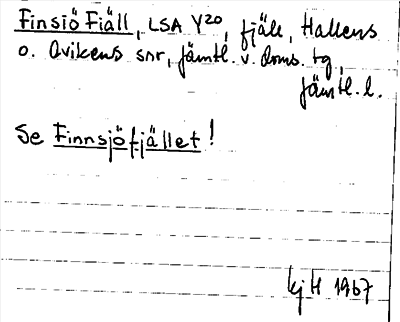 Finsiö Fiäll, LSA Y20, fjäll, Hallens
o. Ovikens snr, Jämtl. v. doms. tg,
Jämtl. l.
Se Finnsjöfjället!
kj H 1967